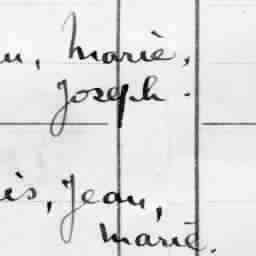 Marie,
Joseph.
Jean,
Marie.